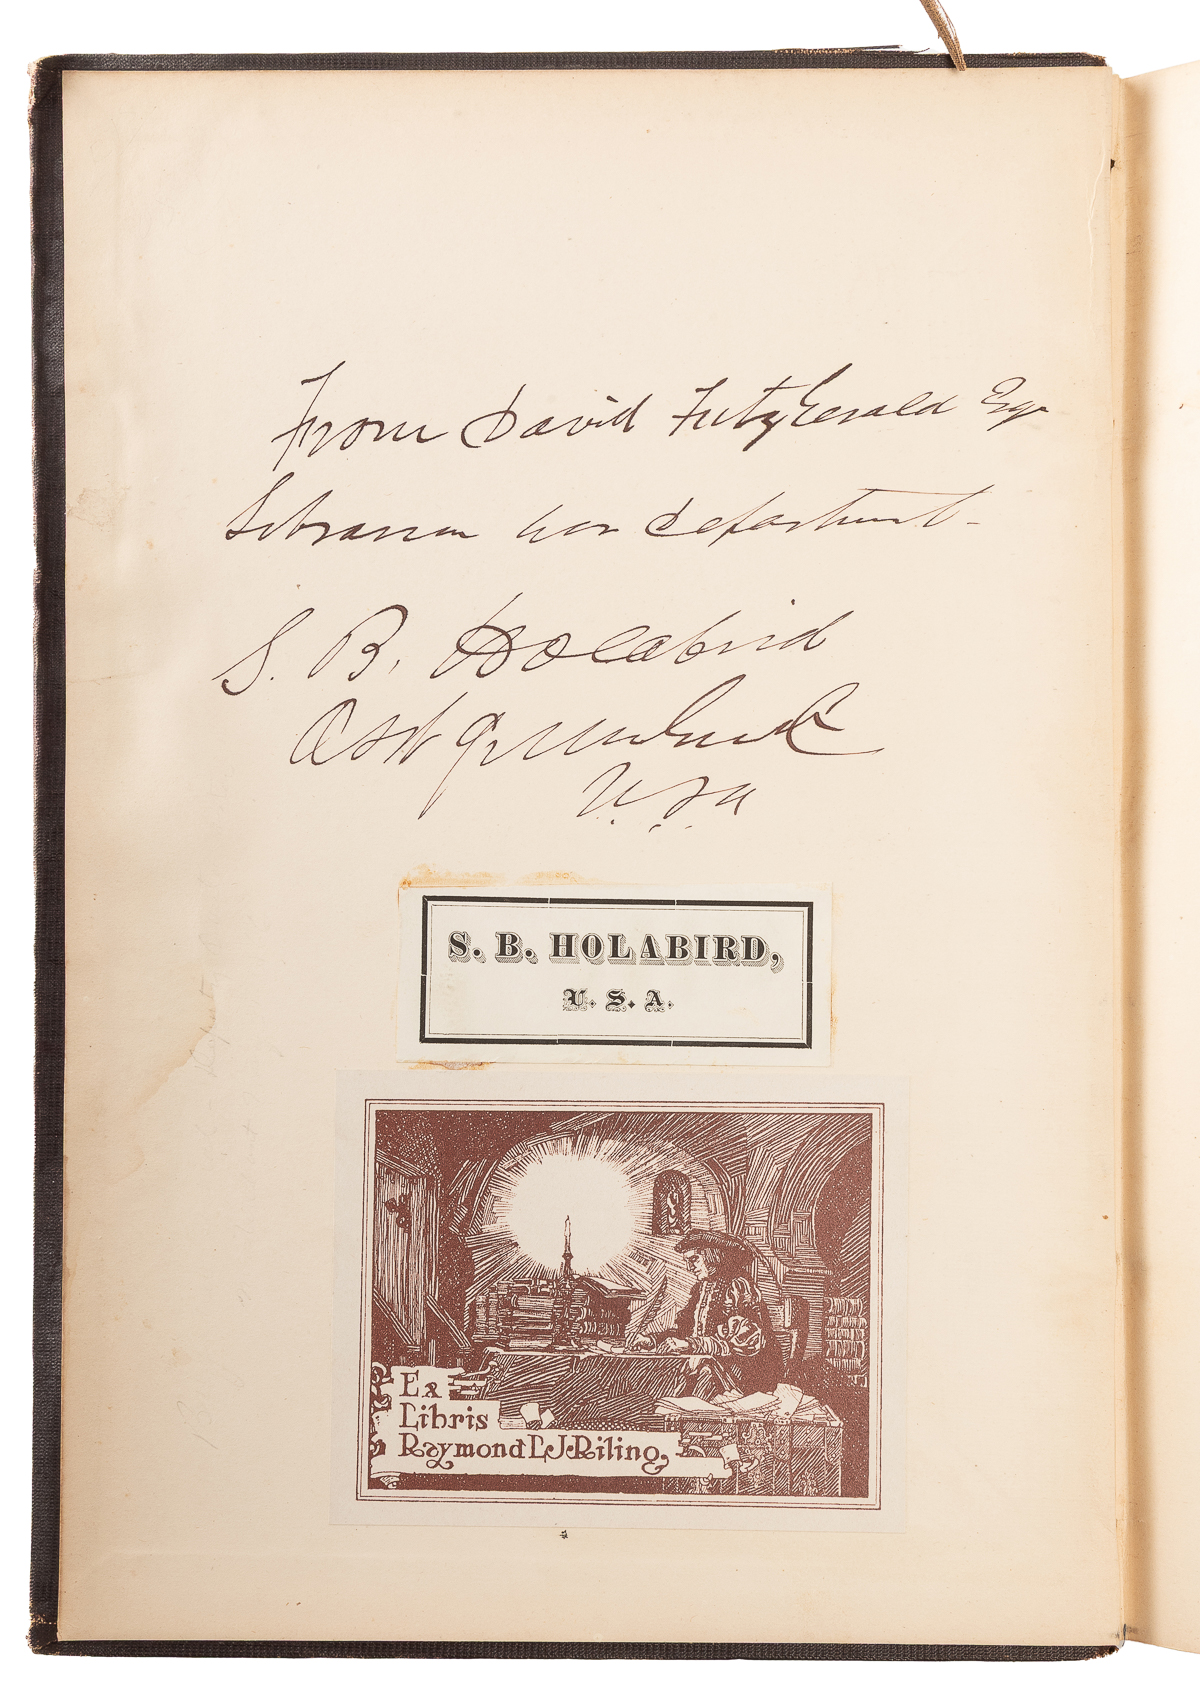 From David FitzGerald Esqr
Librarian War Department -
S. B. Holabird
Asst Qr Mr Genl
U.S.A
S. B. HOLABIRD,
U. S. A.
Ex
Libris
Raymond L.J. Riling